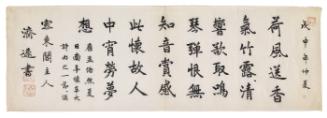 戊申年仲夏
荷風送香
氣竹露清
響欲取鳴
琴彈恨無
知音賞感
此懷故人
中宵勞夢
想
唐孟浩然夏
日南亭懷辛大
詩句之一
東閣主人
濟遠書